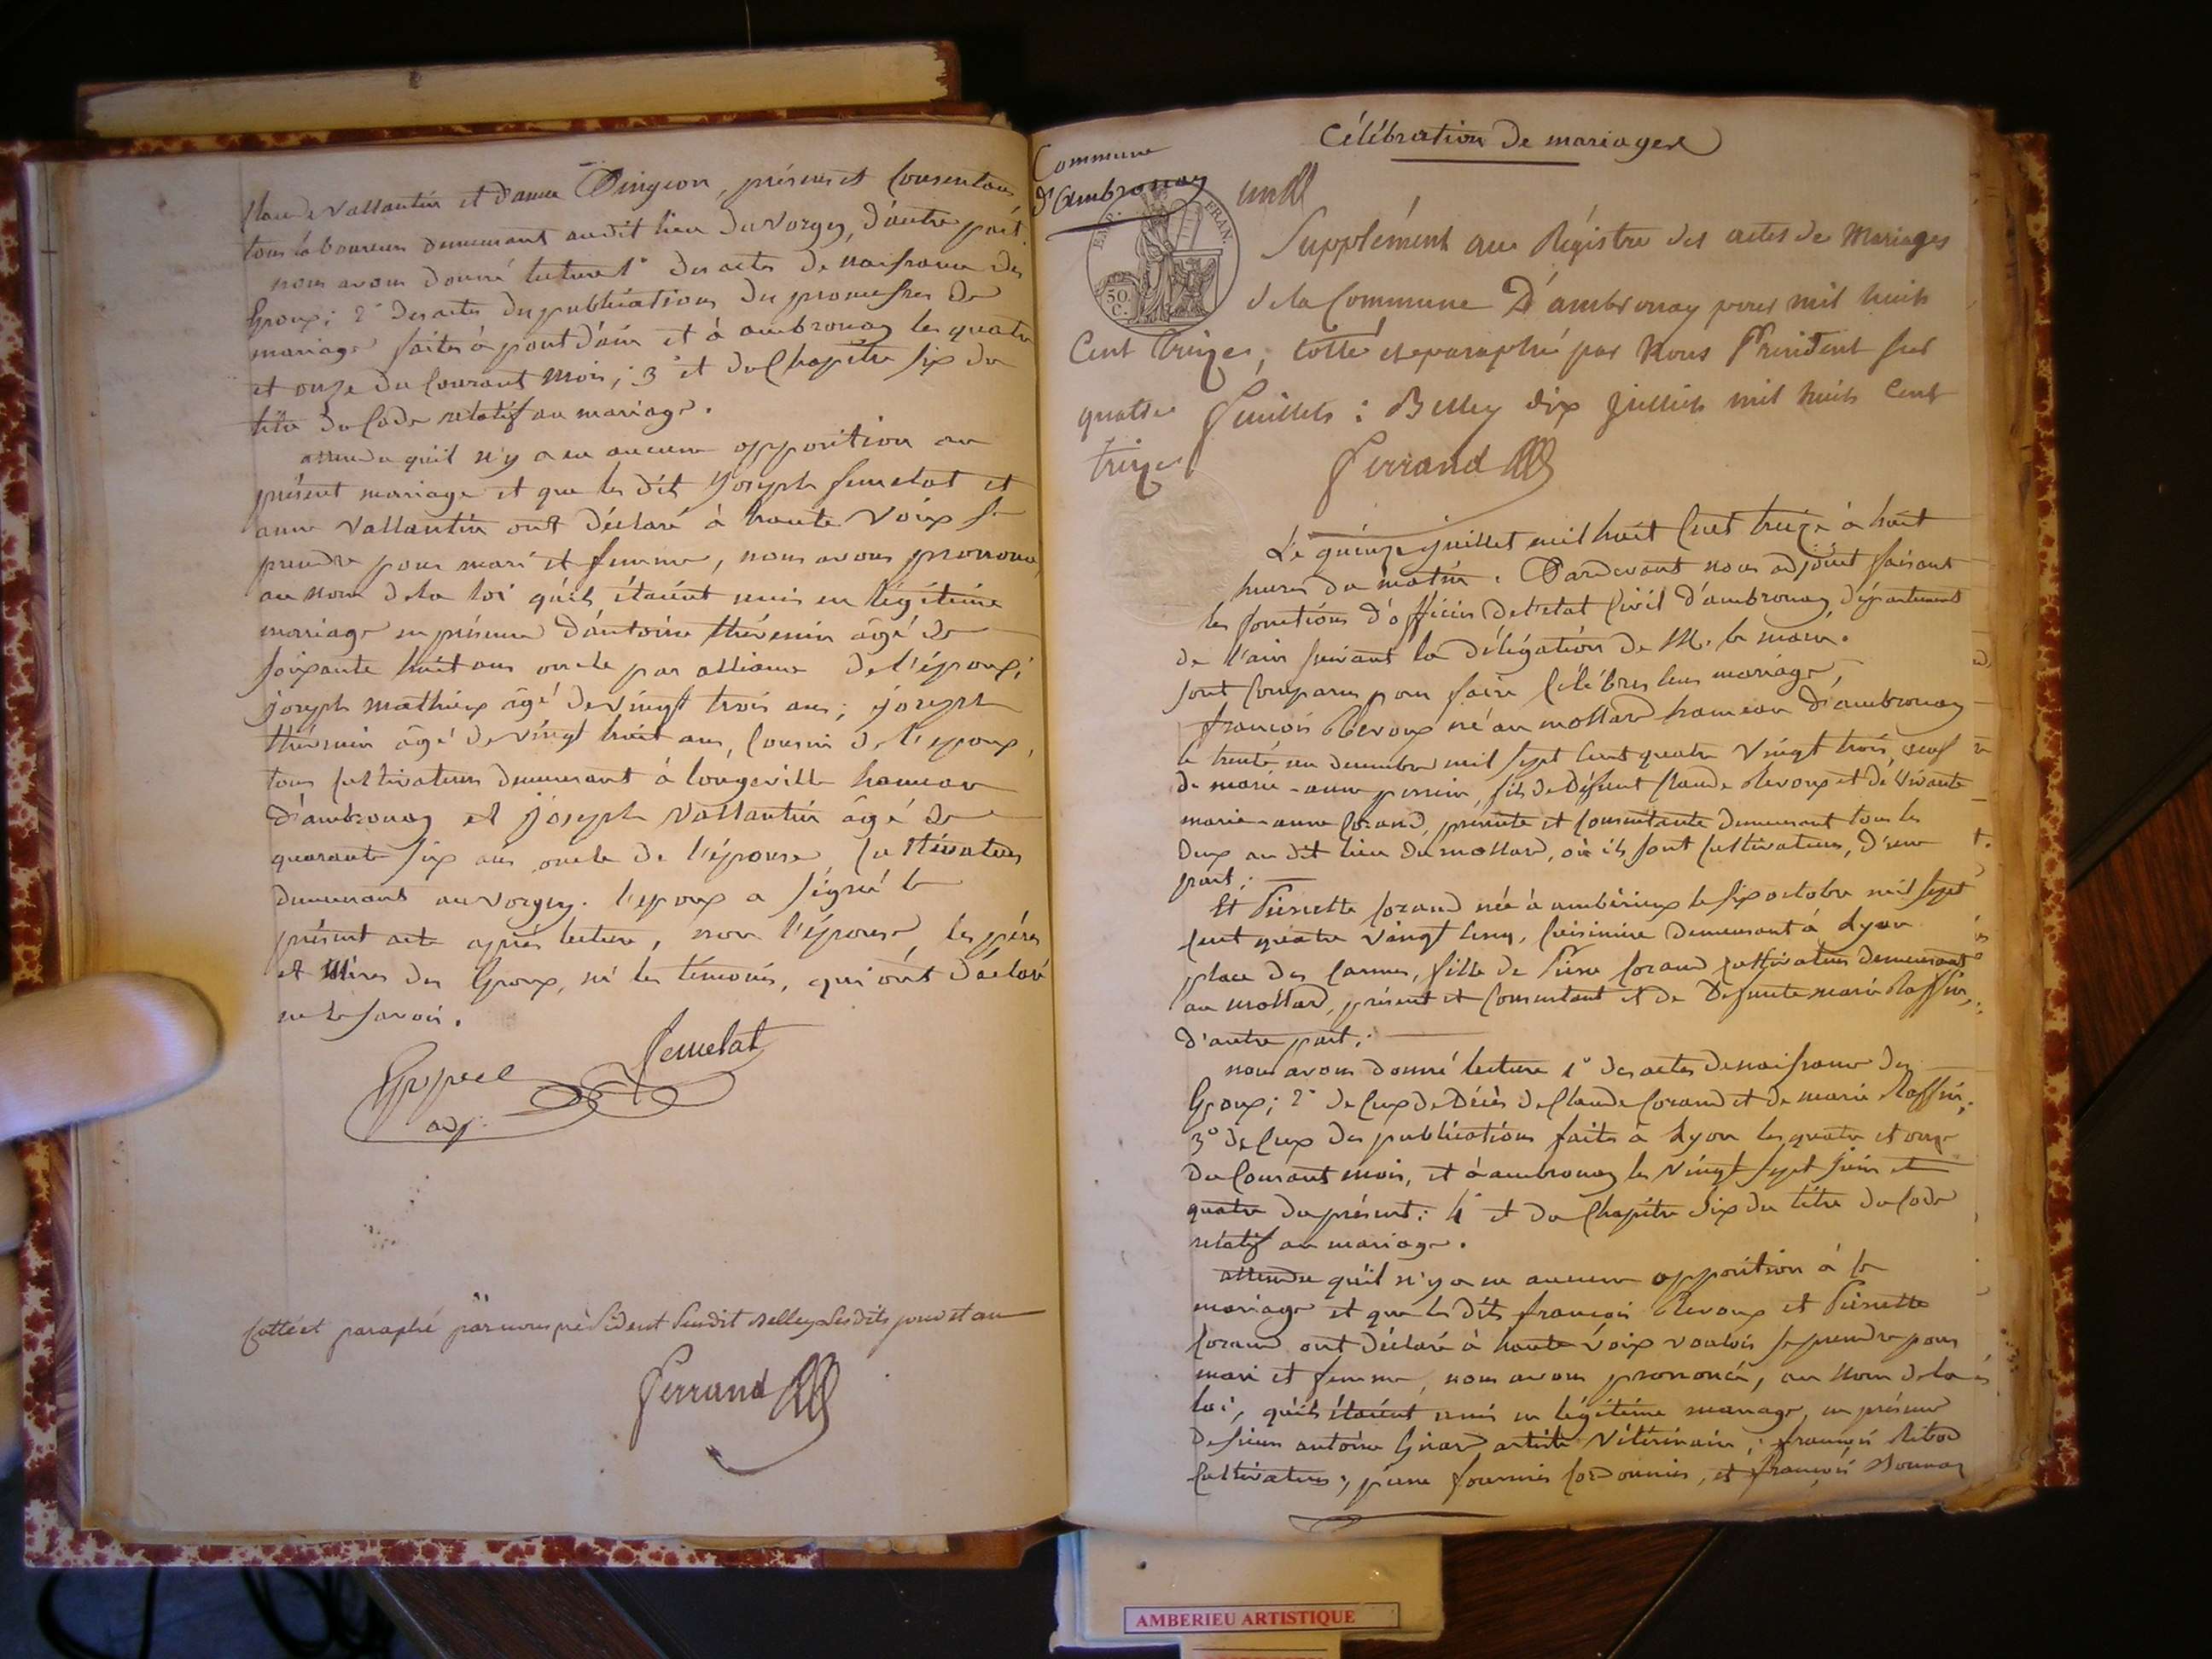 Claude Vallantin et d'anne Dingeon, présens et Consentans,
tous laboureurs demeurant audit lieu du Vorgey, d'autre part.
nous avons donné lecture 1° des actes de naissance des
Epoux; 2° des actes du publications du promesses de
mariage faites à pont d'ain et à ambronay les quatre
et onze du Courant mois; 3° et du Chapitre six du
titre du Code relatif au mariage.
attendu qu'il n'y a eu aucune opposition au
présent mariage et que les dits Joseph Femelat et
anne Vallantin ont déclaré à haute Voix se
prendre pour mari et femme, nous avons prononcé,
au nom de la loi qu'ils étaient unis en légitime
mariage en présence d'antoine thévenin âgé de
soixante huit ans oncle par alliance de l'époux;
joseph mathieux âgé de vingt trois ans; joseph
thévenin âgé de vingt huit ans, Cousin de l'epoux,
tous Cultivateurs demeurant à longeville hameau
d'ambronay et joseph Vallantin âgé de
quarante six ans oncle de l'épouse, Cultivateur
demeurant au vorgey. l'epoux a signé le
présent acte après lecture, non l'épouse, les pères
et Mères des Epoux, ni les témoins, qui ont déclaré
ne le savoir.
Femelat
adj.
Cotté et paraphé par nous président susdit Belley lesdits jour et an
Ferrand
Célébration de mariages
Commune
d'Ambronay
EMP. FRAN.
50 C.
un
Supplément au Régistre des actes de Mariages
de la Commune D'ambronay pour mil huit
Cent treize, cotté et paraphé par Nous Président sur
quatre feuillets: Belley dix juillet mil huit Cent
treize
Ferrand
Le quinze juillet mil huit Cent treize à huit
heures du matin. Pardevant nous adjoint faisant
les fonctions d'officier de l'etat Civil d'ambronay, département
de l'ain suivant la délégation de M. le maire.
sont Comparus pour faire Célébrer leur mariage,
françois Revoux né au mollard hameau d'ambronay
le trente un decembre mil sept Cent quatre vingt trois, veuf
de marie-anne perrin, fils de défunt Claude Revoux et de vivante
marie-anne Cozand, présente et Consentante demeurant tous les
deux au dit lieu du mollard, où ils sont Cultivateurs, d'une
part;
Et Pierrette Cozand née à ambérieux le six octobre mil sept
Cent quatre vingt Cinq, Cuisinière demeurant à Lyon
place des Carmes, fille de Pierre Cozand Cultivateur demeurant
au mollard, présent et Consentant et de Defunte marie Raffin,
d'autre part;
nous avons donné lecture 1° des actes de naissance des
Epoux; 2° de Ceux de Décès de Claude Cozand et de marie Raffin;
3° de Ceux des publications faites à Lyon les quatre et onze
du Courant mois, et à ambronay les vingt sept juin et
quatre du présent; 4° et du Chapitre six du titre du Code
relatif au mariage.
attendu qu'il n'y a eu aucune opposition à le
mariage et que les dits françois Revoux et Pierrette
Cozand ont déclaré à haute voix vouloir se prendre pour
mari et femme, nous avons prononcé, au nom de la
loi, qu'ils étaient unis en légitime mariage, en présence
de sieurs antoine Girard artiste Vétérinaire; françois Ribod
Cultivateur; pierre fournier Cordonnier, et françois Bonnaz
AMBERIEU ARTISTIQUE